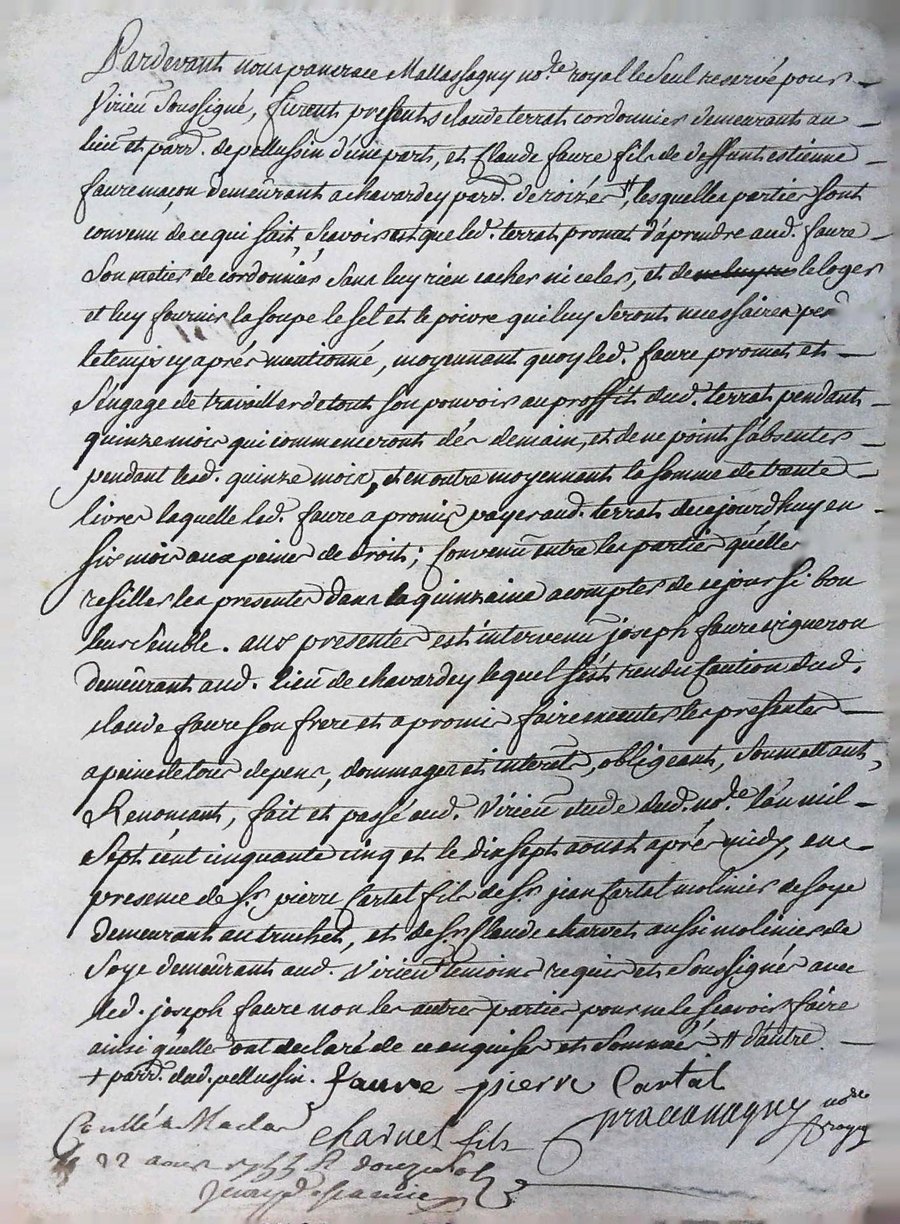 Pardevant nous pancrace Mallassagny no.re royal le seul reservé pour
Virieu soussigné, furent presents claude terrat cordonnier demeurant au
lieu et parr. de pellussin d'une part, et Claude faure fils de deffunt estienne
faure maçon demeurant a chavardey parr. de roizée #, lesquelles partier sont
convenu de ce qui sait, scavoir est que led. terrat promet d'aprendre aud. faure
son metier de cordonnier sans luy rien cacher ni celer, et de le loger
et luy fournir la soupe le sel et le poivre qui luy seront necessaires
le temps cy aprés mentionné, moyennant quoy led. faure promet et
s'engage de travailler de tout son pouvoir au proffit dud. terrat pendant
quinze mois qui commenceront dés demain, et de ne point s'absenter
pendant lesd. quinze mois, et en outre moyennent la somme de trante
livres laquelle led. faure a promis payer aud. terrat decejourd'huy en
six mois aux peines de droit; convenu entre les partier quélles
resilles les presentes dans la quinzaine a compter de ce jour si bon
leur semble. aux presentes est intervenu joseph faure vigneron
demeurant aud. lieu de chavardey lequel s'est rendu caution dud.
claude faure son frere et a promis faire executer les presentes
a peine de tous depens, dommages et interets, obligeant, soumettant,
Renonçant, fait et passé aud. Virieu etude dud. no.re l'an mil
sept cent cinquante cinq et le dix sept aoust aprés midy, en
presence de sr. pierre Cartal fils de sr. jean Cartal molinier de soye
demeurant au truchet, et de sr. Claude charvet aussi molinier de
soye demeurant aud. Virieu temoins requis et soussignés avec
led. joseph faure non les autres partier pour ne le scavoir faire
ainsi qu'elles ont declaré de ce enquises et sommés # d'autre
+ parr. dud. pellussin. faure pierre Cartal
charvet fils Mallassagny no.re royal
Conllé a Maclas
22 aoust 1755 R douze sols